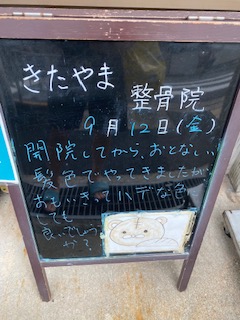 きたやま
整骨院
9月12日(金)
開院してから、おとなしい
髪色でやってきましたが
おもいきってハデな色
にしても
良いでしょう
か?